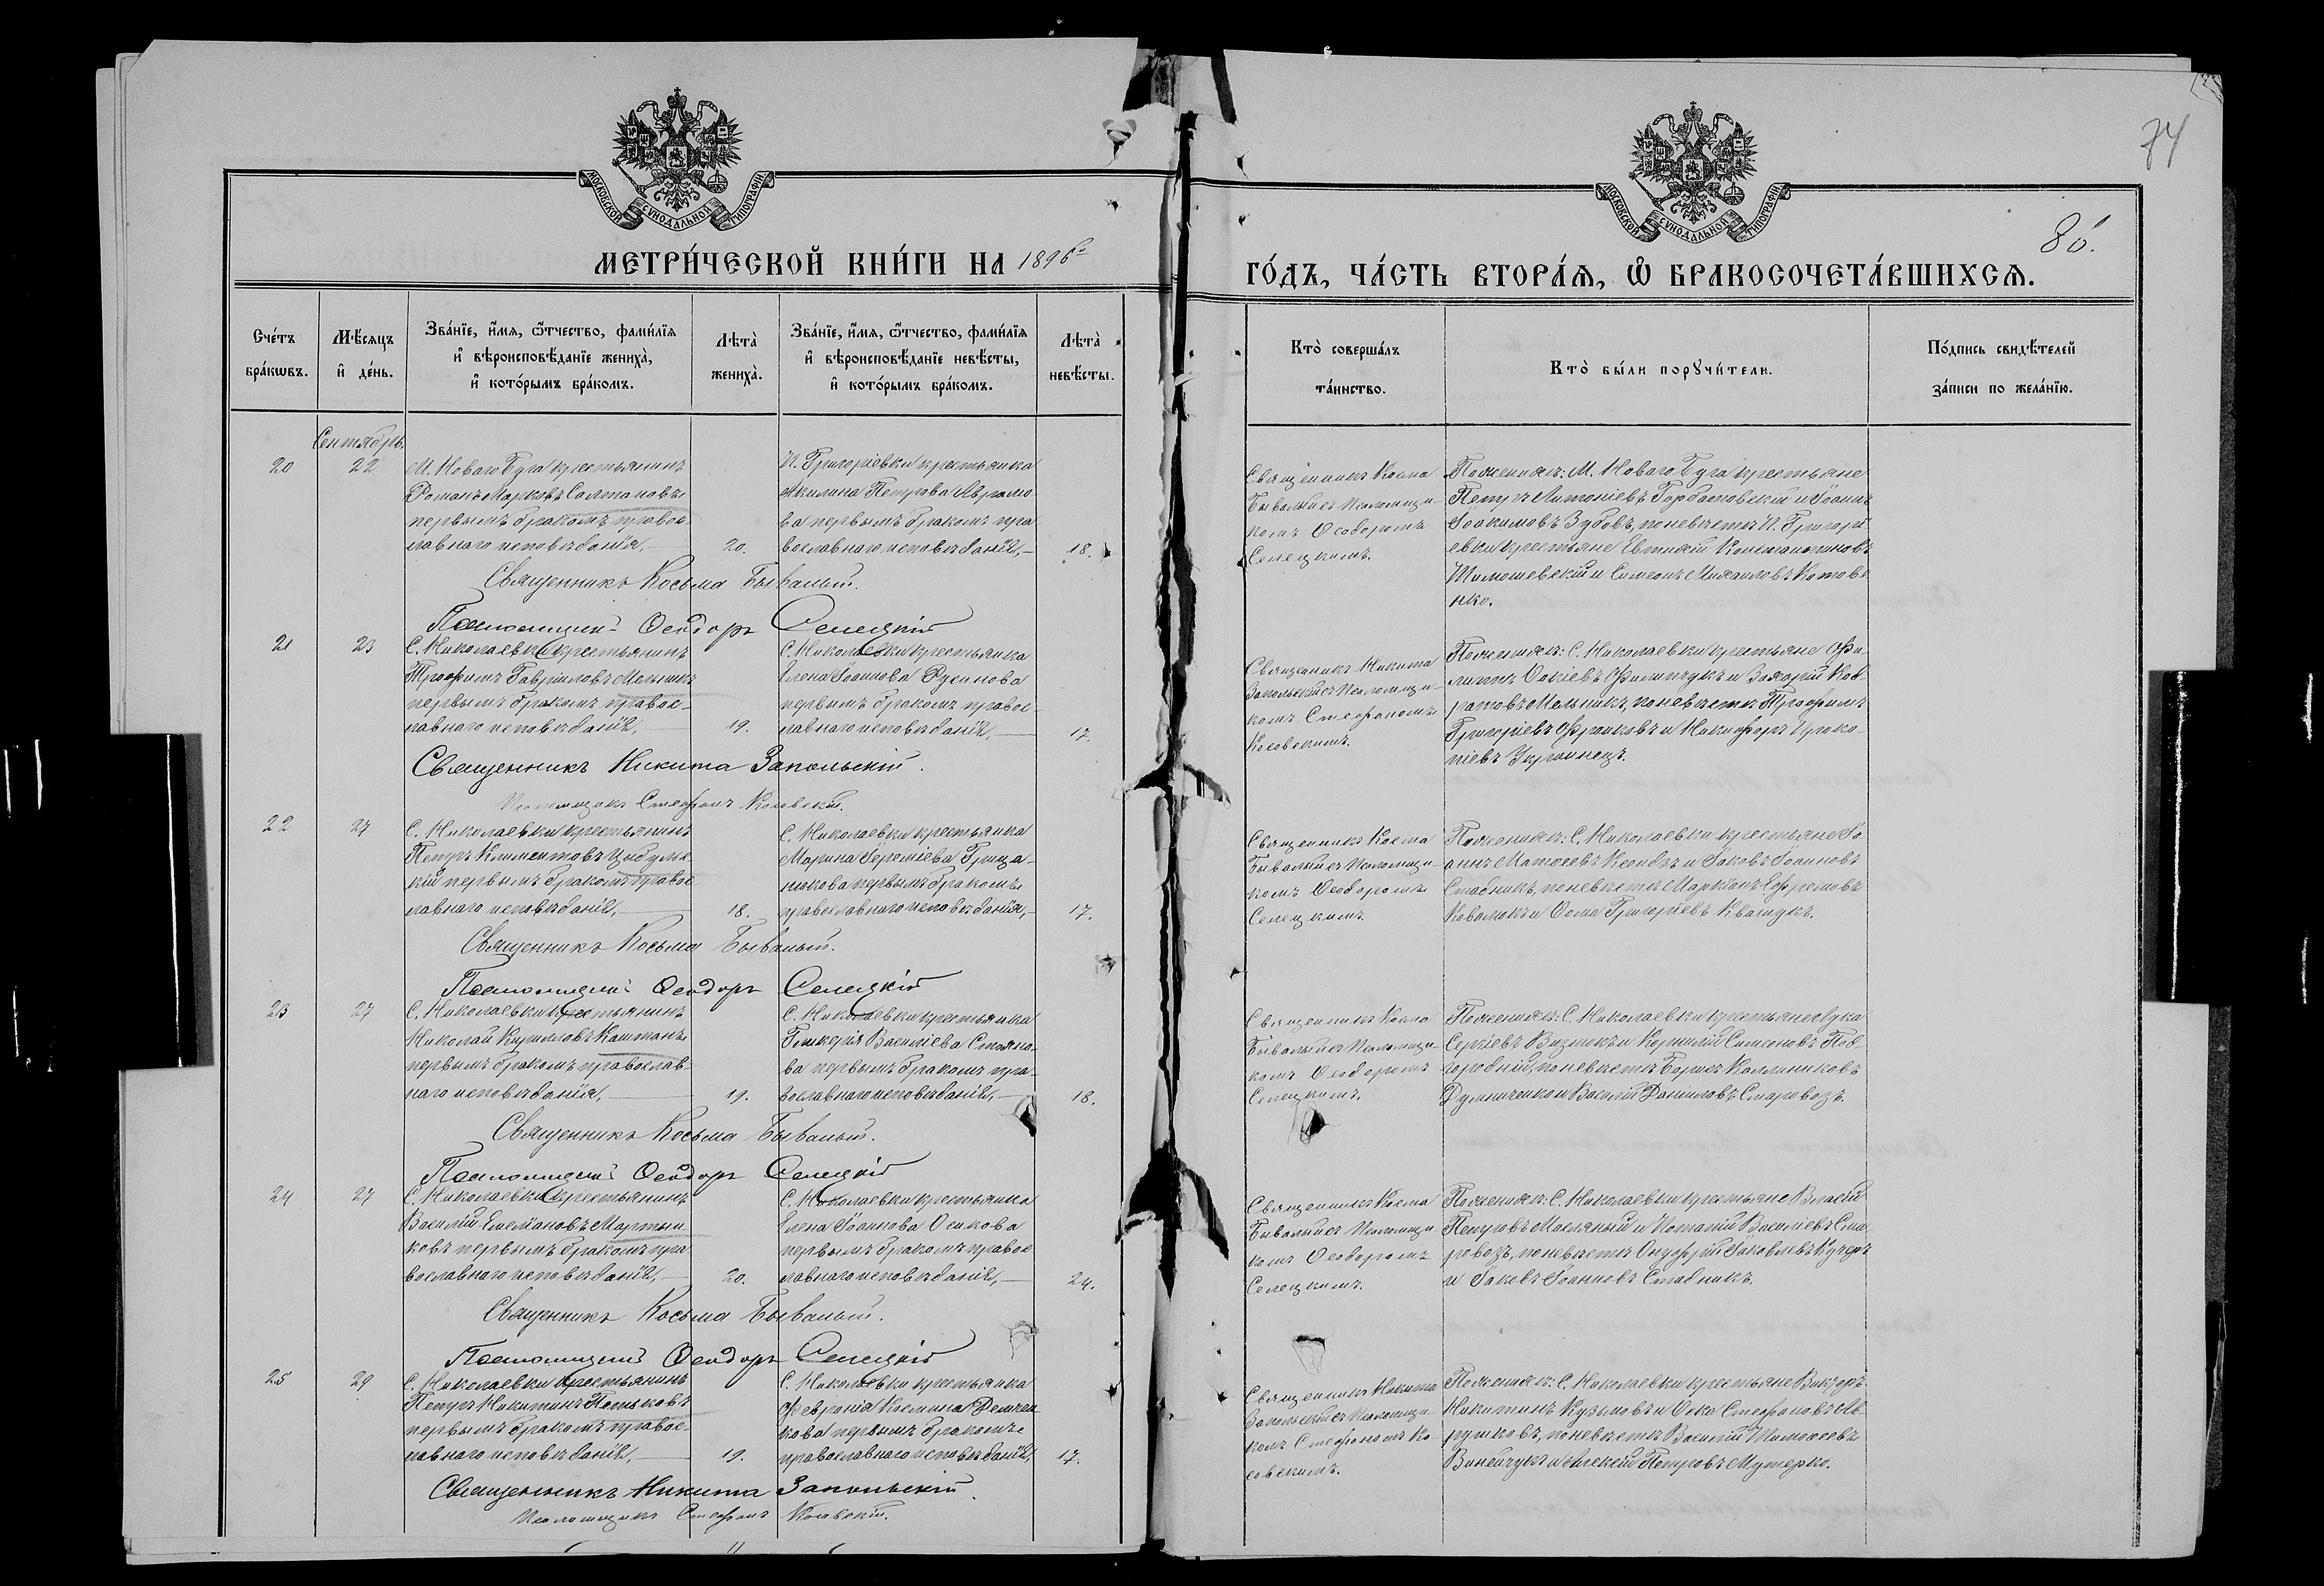 74
80.
МОСКОВСКОЙ СУНОДАЛЬНОЙ ТИПОГРАФІИ
МОСКОВСКОЙ СУНОДАЛЬНОЙ ТИПОГРАФІИ
МЕТРИ́ЧЕСКОЙ КНИ́ГИ НА 1896й
ГО́ДЪ, ЧА́СТЬ ВТОРА́Я, Ѡ БРАКОСОЧЕТА́ВШИХСЯ.
Сче́тъ бра́кѡвъ.
Мѣ́сяцъ и де́нь.
Зва́нїе, и́мя, ѻ́тчество, фами́лїя
и вѣроисповѣ́данїе жениха̀,
и кото́рымъ бра́комъ.
Лѣта̀ жениха̀.
Зва́нїе, и́мя, ѻ́тчество, фами́лїя
и вѣроисповѣ́данїе невѣ́сты,
и кото́рымъ бра́комъ.
Лѣта̀ невѣ́сты.
Кто̀ соверша́лъ
та́инство.
Кто̀ бы́ли порꙋчи́тели.
По́дпись свидѣ́телей
за́писи по жела́нїю.
Сентябрь.
20
22
М. Новаго Буга крестьянинъ
Романъ Марковъ Салтановъ
первымъ бракомъ правос-
лавнаго исповѣданія,
20.
П. Григоріевки крестьянка
Акилина Петрова Аврамо-
ва первымъ бракомъ пра
вославнаго исповѣданія,
18.
Священникъ Косма
Бывалый съ псаломщи-
комъ Ѳеодоромъ
Селецкимъ.
По женихѣ: М. Новаго Буга крестьяне
Петръ Антоніевъ Горбатовскій и Іоаннъ
Іоакимовъ Зубовъ, по невѣстѣ П. Григорі
евки крестьяне Евтихій Константиновъ
и Симеонъ Михаиловъ Котове
нко.
Священникъ Косьма Бывалый.
Псаломщикъ Ѳеодоръ Селецкій
21
23
С. Николаевки крестьянинъ
Трофимъ Гавріиловъ Мельникъ
первымъ бракомъ правос-
лавнаго исповѣданія,
19.
С. Николаевки крестьянка
Елена Іоаннова Русинова
первымъ бракомъ правос-
лавнаго исповѣданія,
17.
Священникъ Никита
Запольскій съ псаломщи-
комъ Стефаномъ
Косовскимъ.
По женихѣ: С. Николаевки крестьяне Фи-
липпъ Филипчукъ и Захарій Код-
ратовъ Мельникъ, по невѣстѣ Трофимъ
Григоріевъ Франковъ и Никифоръ Проко-
піевъ Украинецъ.
Священникъ Никита Запольскій.
Псаломщикъ Стефанъ Косовскій.
22
27
С. Николаевки крестьянинъ
Петръ Климентовъ Цыбульс-
кій первымъ бракомъ правос
лавнаго исповѣданія,
18.
С. Николаевки крестьянка
Марина Іереміева Грица-
нюкова первымъ бракомъ
православнаго исповѣданія,
17.
Священникъ Косма
Бывалый съ псаломщи-
комъ Ѳеодоромъ
Селецкимъ.
По женихѣ: С. Николаевки крестьяне Іо-
аннъ Матѳеевъ и Іаковъ Іоанновъ
Стадникъ, по невѣстѣ Маркіанъ Ефремовъ
Ковалюкъ и Ѳома Григоріевъ Квачукъ.
Священникъ Косьма Бывалый.
Псаломщикъ Ѳеодоръ Селецкій
23
27
С. Николаевки крестьянинъ
Николай Кирилловъ Каштанъ
первымъ бракомъ православ-
наго исповѣданія,
19.
С. Николаевки крестьянка
Гликерія Василіева Стояно-
ва первымъ бракомъ пра-
вославнаго исповѣданія,
18.
Священникъ Косма
Бывалый съ псаломщи-
комъ Ѳеодоромъ
Селецкимъ.
По женихѣ: С. Николаевки крестьяне Лука
Сергіевъ Визнюкъ и Корнилій Симеоновъ Под-
городній, по невѣстѣ Борисъ Каллиниковъ
Думниченко и Василій Даніиловъ Старовозъ.
Священникъ Косьма Бывалый.
Псаломщикъ Ѳеодоръ Селецкій
24
27
С. Николаевки крестьянинъ
Василій Емеліановъ Мартын-
ковъ первымъ бракомъ пра
вославнаго исповѣданія,
20.
С. Николаевки крестьянка
Елена Іоаннова Осикова
первымъ бракомъ правос
лавнаго исповѣданія,
24.
Священникъ Косма
Бывалый съ псаломщи
комъ Ѳеодоромъ
Селецкимъ.
По женихѣ: С. Николаевки крестьяне Власій
Петровъ Масляный и Потапій Василіевъ Ста-
ровозъ, по невѣстѣ Онуфрій Іаковлевъ Кучеръ
и Іаковъ Іоанновъ Стадникъ.
Священникъ Косьма Бывалый.
Псаломщикъ Ѳеодоръ Селецкій
25
29
С. Николаевки крестьянинъ
Петръ Никитинъ Петьковъ
первымъ бракомъ правос-
лавнаго исповѣданія,
19.
С. Николаевки крестьянка
Февронія Космина Демчен
кова первымъ бракомъ
православнаго исповѣданія,
17.
Священникъ Никита
Запольскій съ псаломщи-
комъ Стефаномъ Ко
совскимъ.
По женихѣ: С. Николаевки крестьяне Викторъ
Никитинъ Кузьмовъ и Стефановъ Ав-
рушковъ, по невѣстѣ Василій Тимоѳеевъ
Винейчукъ и Алексій Петровъ Мутерко.
Священникъ Никита Запольскій.
Псаломщикъ Стефанъ Косовскій.